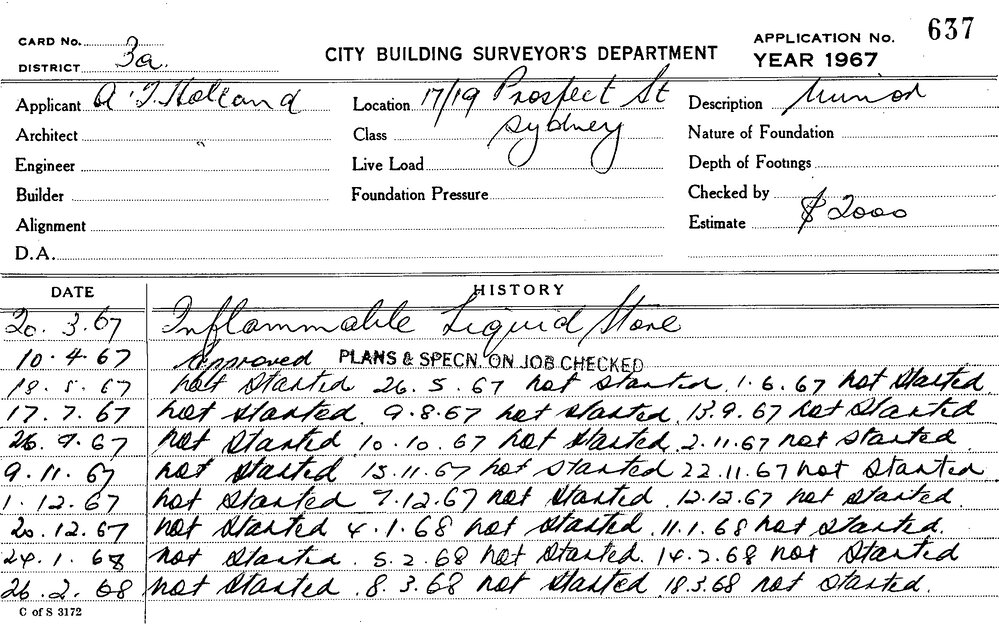 637
CARD No.
CITY BUILDING SURVEYOR'S DEPARTMENT
APPLICATION No.
DISTRICT 3a.
YEAR 1967
Applicant A. T. Holland
Location 17/19 Prospect St
Description Minor
Architect
Class Sydney
Nature of Foundation
Engineer
Live Load
Depth of Footings
Builder
Foundation Pressure
Checked by
Alignment
Estimate $2000
D.A.
DATE HISTORY
20. 3. 67 Inflammable Liquid Store
10. 4. 67 Approved PLANS & SPECN. ON JOB CHECKED
18. 5. 67 not started 26. 5. 67 not started. 1. 6. 67 not started
17. 7. 67 not started. 9. 8. 67 not started. 13. 9. 67 not started
26. 9. 67 not started 10. 10. 67 not started. 2. 11. 67 not started
9. 11. 67 not started 15. 11. 67 not started 22. 11. 67 not started
1. 12. 67 not started 7. 12. 67 not started. 12. 12. 67 not started
20. 12. 67 not started 4. 1. 68 not started. 11. 1. 68 not started.
24. 1. 68 not started. 5. 2. 68 not started. 14. 2. 68 not started
26. 2. 68 not started. 8. 3. 68 not started 18. 3. 68 not started.
C of S 3172